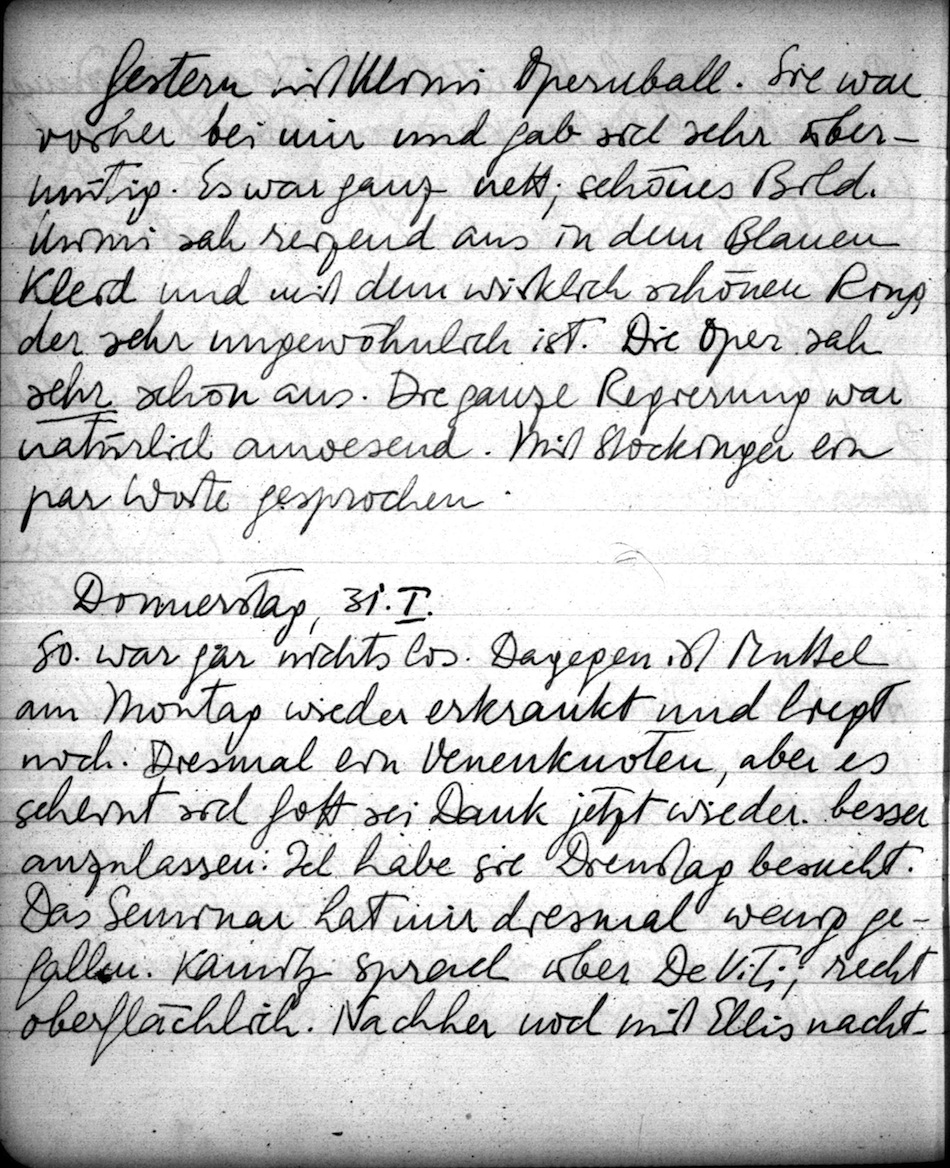 Gestern mit Mimi Opernball. Sie war
vorher bei mir und gab sich sehr über-
mütig. Es war ganz nett, schönes Bild.
Mimi sah reizend aus in dem Blauen
Kleid und mit dem wirklich schönen Ring,
der sehr ungewöhnlich ist. Die Oper sah
sehr schön aus. Die ganze Regierung war
natürlich anwesend. Mit Stockinger ein
par Worte gesprochen.
Donnerstag, 31.I.
So. war gar nichts los. Dagegen ist Muttel
am Montag wieder erkrankt und liegt
noch. Diesmal ein Venenknoten, aber es
scheint sich Gott sei Dank jetzt wieder besser
anzulassen. Ich habe sie Dienstag besucht.
Das Seminar hat mir diesmal wenig ge-
fallen. Kamitz sprach über De V. T.; recht
oberflächlich. Nachher noch mit Ellis nacht-